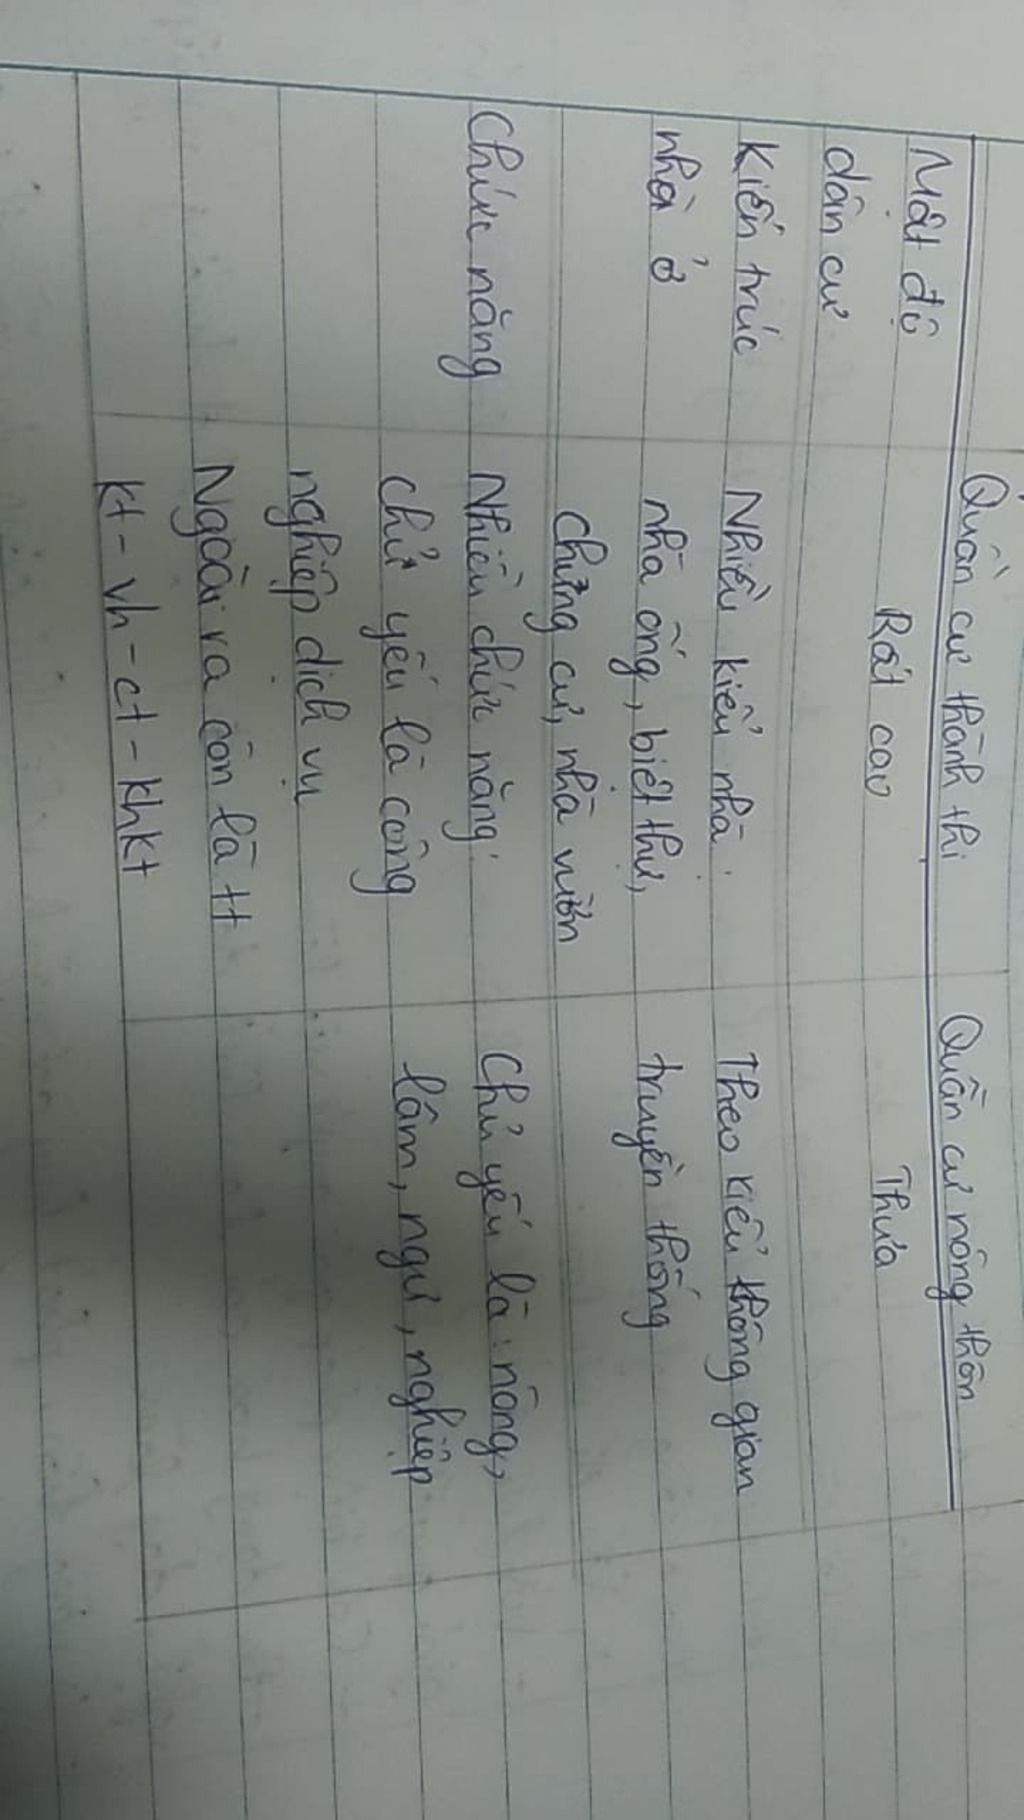 Quần cư thành thị Quần cư nông thôn
Mật độ Rất cao Thưa
dân cư
Kiến trúc Nhiều kiểu nhà: Theo kiểu không gian
nhà ở nhà ống, biệt thự, truyền thống
chưng cư, nhà vườn
Chức năng Nhiều chức năng: Chủ yếu là: nông,
chủ yếu là công lâm, ngư, nghiệp
nghiệp dịch vụ
Ngoài ra còn là tt
kt - vh - ct - khkt